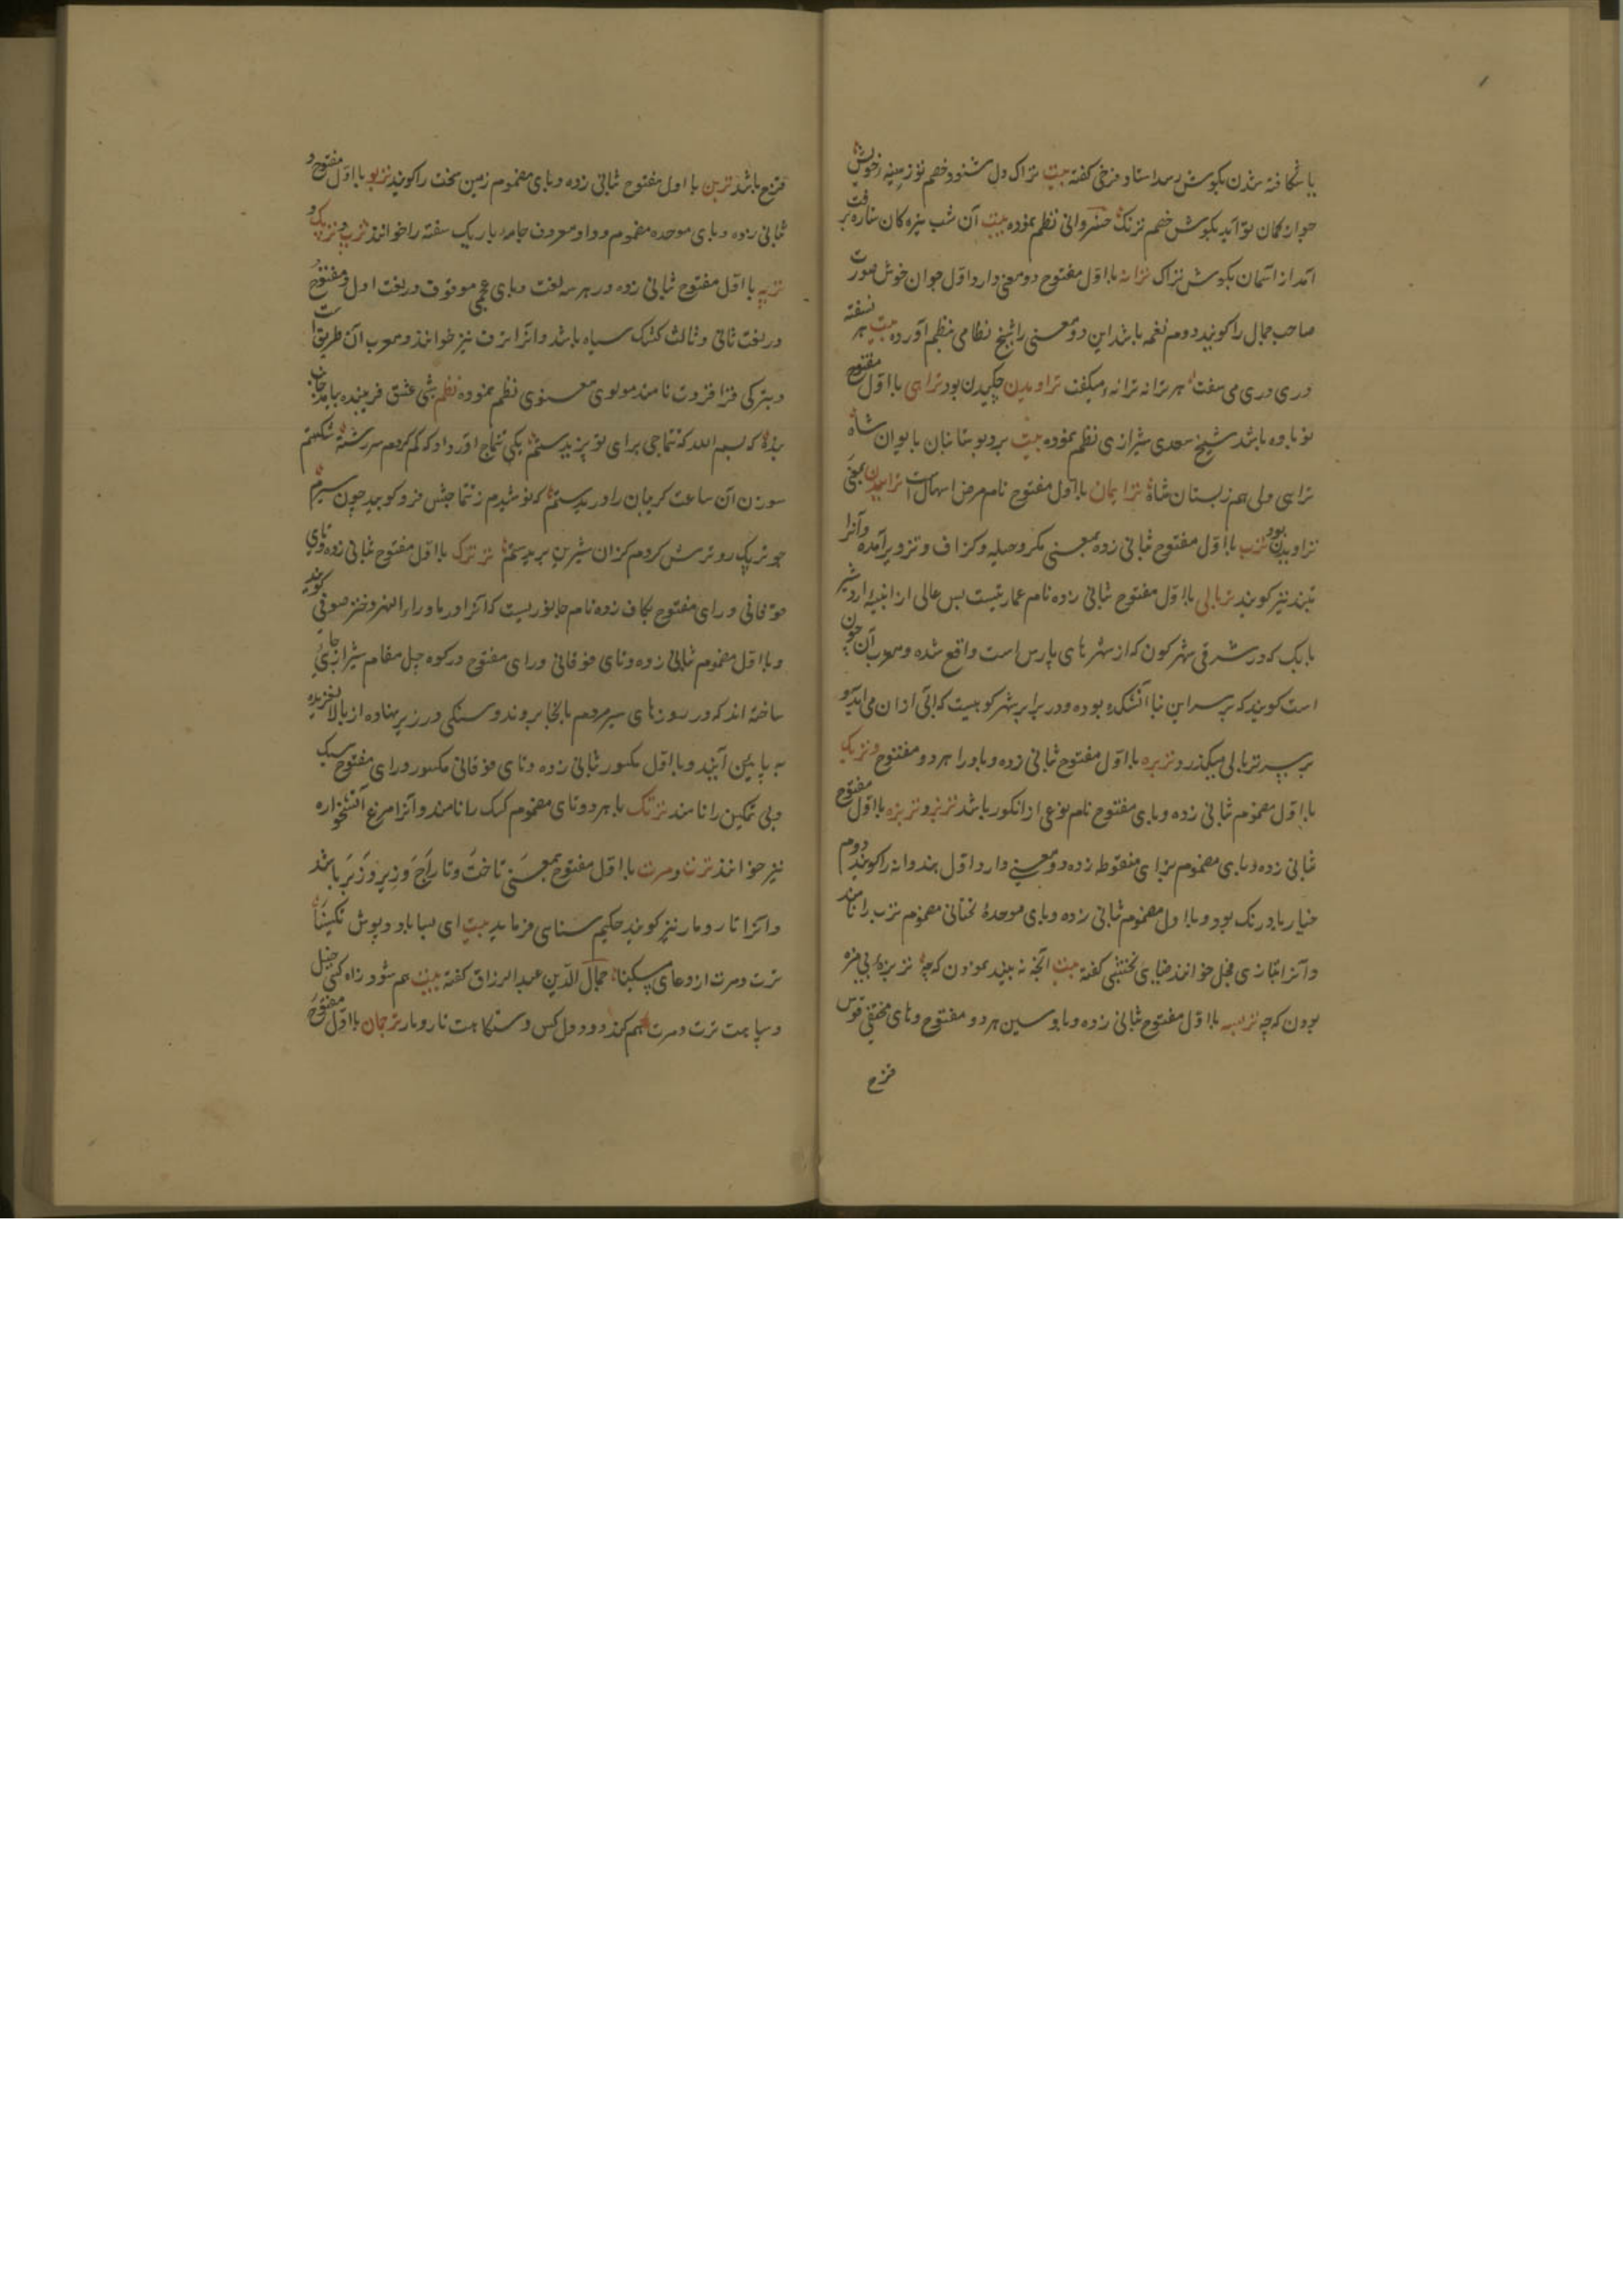 یا شکافته شدن بگوش رسد استاد فرخی گفته بیت تراک دل شنود خصم تو ز سینه خویش
چو از کمان تو آید بگوش خصم ترنگ خسروانی نظم نموده بیت آن شب بزه کان ستاره برفت
آمد از آسمان بگوش تراک ترانه با اول مفتوح دو معنی دارد اول جوان خوش صورت
صاحب جمال را کویند دوم نغمه باشد این دو معنی را شیخ نظامی بنظم آورده بیت هر نسفته
دری دری می سفت هر ترانه ترانه میکفت تراویدن چکیدن بود تراهی با اول مفتوح
نوباوه باشد شیخ سعدی شیرازی نظم نموده بیت برد بوستانبان بایوان شاه
تراهی ولی هم ز بستان شاه ترایمان با اول مفتوح نام مرض اسهال است تراییدن بمعنی
تراویدن بود ترب با اول مفتوح ثانی زده بمعنی مکر و حیله و کزاف و تزویر آمده و آنرا
تبند نیز کویند تربالی با اول مفتوح ثانی زده نام عمارتیست بس عالی از ابنیه اردشیر
بابک که در شرقی شهر کون که از شهرهای پارس است واقع شده و معرب آن جون
است کویند که بر سر این بنا آتشکده بوده و در برابر شهر کوهیست که آبی از ان می آید و
بر سر تربالی میکذرد تربره با اول مفتوح ثانی زده و با و را هر دو مفتوح و تربک
با اول مضموم ثانی زده و بای مفتوح نام نوعی از انکور باشد تربز و تربزه با اول مفتوح
ثانی زده و بای مضموم بزای منقوطه زده دو معنی دارد اول هندوانه را کویند دوم
خیار بادرنک بود و با اول مضموم ثانی زده و بای موحدۀ تحتانی مضموم ترب را نامند
و آنرا بتازی فجل خوانند ضیای نخشبی کفته بیت آنچه نه بیند بمودن که چه تربزۀ بی مزه
بودن که چه تربسه با اول مفتوح ثانی زده و با و سین هر دو مفتوح و های مختفی قوس
قزح
قزح باشد تربن با اول مفتوح ثانی زده و بای مضموم زمین سخت را کویند تربو با اول مفتوح و
ثانی زده و بای موحده مضموم و واو معروف جامه باریک سفته را خوانند ترپ و ترپک و
ترپه با اول مفتوح ثانی زده در هر سه لغت و بای عجمی موقوف در لغت اول و مفتوح
در لغت ثانی و ثالث کشک سیاه باشد و آنرا ترف نیز خوانند و معرب آن طریق است
و بترکی قرا قروت نامند مولوی معنوی نظم نموده نظم شبی عشق فریبنده بیامد جانب
بنده که بسم الله که تتماجی برای تو پزیدستم یکی تتماج آورد او که کم کردم سر رشته شکستم
سوزن آن ساعت کریبان را دریدستم که نوشیدم ز تتماجش فرو کوبید چون سیرم
چو ترپک رو ترش کردم کزان شیرین بریدستم ترترک با اول مفتوح ثانی زده و تای
فوقانی و رای مفتوح بکاف زده نام جانوریست که آنرا در ماوراء النهر دختر صوفی کویند
و با اول مضموم ثانی زده و تای فوقانی و رای مفتوح در کوه چل مقام شیراز جائی
ساخته اند که در روزهای سیر مردم بانجا بروند و سنکی در زیر نهاده از بالا لغزیده
به پایین آیند و با اول مکسور ثانی زده و تای فوقانی مکسور و رای مفتوح سبک
و بی تمکین را نامند ترتک با هر دو تای مضموم کبک را نامند و آنرا مرغ آتشخواره
نیز خوانند ترت و مرت با اول مفتوح بمعنی تاخت و تاراج و زیر و زبر باشد
و آنرا تار و مار نیز کویند حکیم سنای فرماید بیت ای بسا باد و بوش تکینا
ترت و مرت از دعای مسکینا جمال الدین عبدالرزاق گفته بیت هم شود راه کسی خیل
و سپاهت ترت و مرت هم کند دود دل کس دستکاهت تار و مار ترجان با اول مفتوح